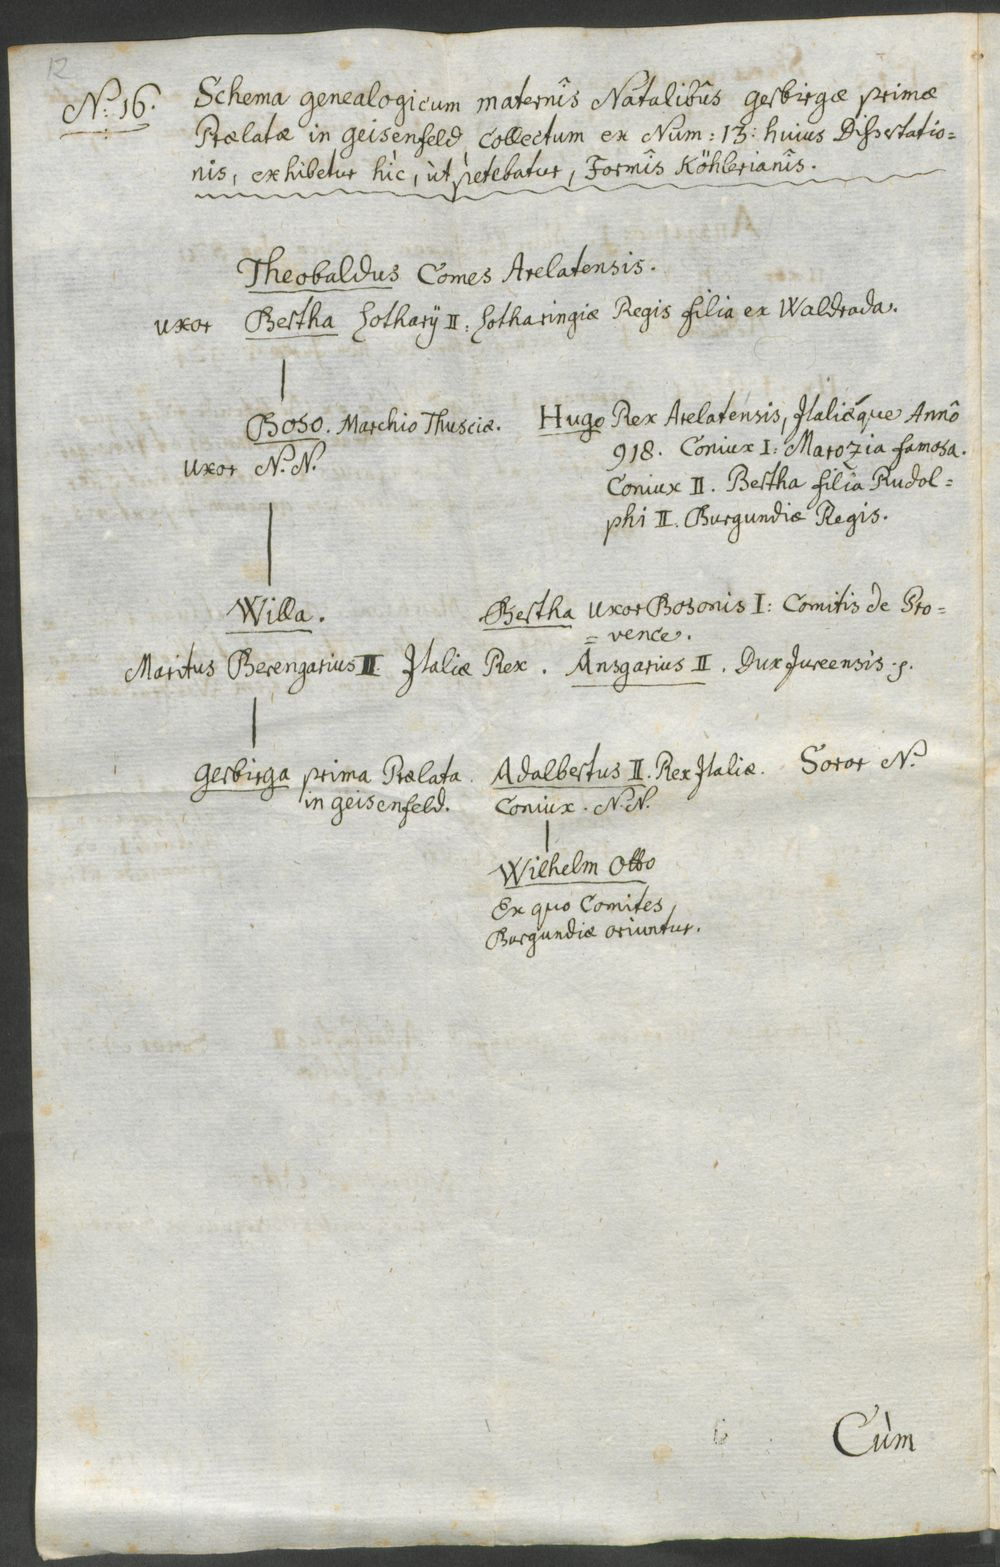 12
N.o 16. Schema genealogicum maternîs Natalibûs gerbirgæ primæ
Prælatæ in geisenfeld, collectum ex Num: 13: huius Dissertatio=
nis, exhibetur hìc, ùt petebatur, Formîs Köhlerianîs.
Theobaldus Comes Arelatensis.
uxor Bertha Lotharÿ II: Lotharingiæ Regis filia ex Waldrada.
Boso. Marchio Thusciæ. Hugo Rex Arelatensis, Italiæque Annô
uxor N.N. 918. Coniux I: Marozia famosa.
Coniux II. Bertha filia Rudol=
phi II. Burgundiæ Regis.
Willa. Bertha uxor Bosonis I: Comitis de Pro=
=vence.
Maritus Berengarius II. Italiæ Rex. Ansgarius II. Dux Jureensis.
gerbirga prima Prælata Adalbertus II. Rex Italiæ. Soror N.
in geisenfeld. Coniux. N.N.
Wilhelm Otto
Ex quo Comites
Burgundiæ oriuntur.
Cùm